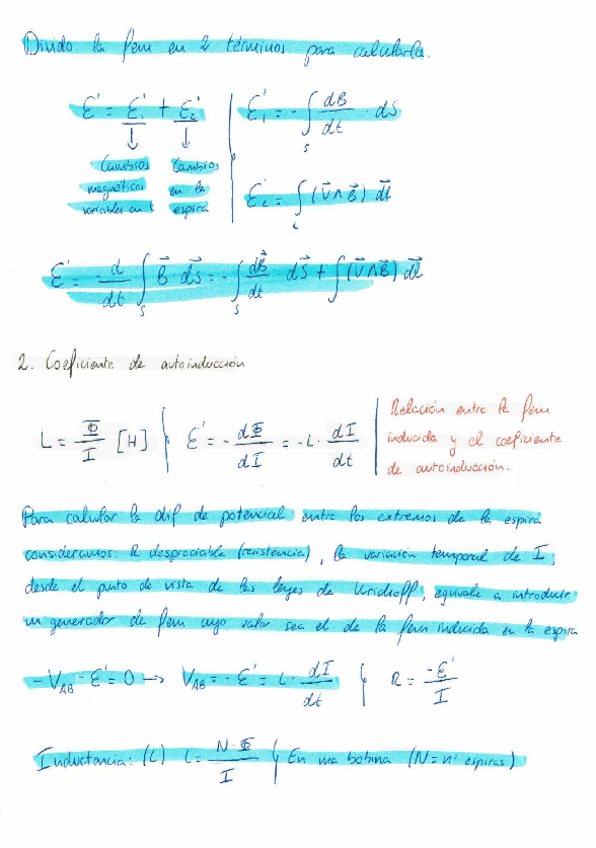 Divido la fem en 2 términos para calcularla.
ε' = ε₁' + ε₂' | ε₁' = - ∫_S dB/dt · dS
↓ ↓
Cambios magnéticos variables en t
Cambios en la espira
ε₂' = ∫_L (V⃗ ∧ B⃗) dl⃗
ε' = - d/dt ∫_S B⃗ · dS⃗ = - ∫_S dB⃗/dt · dS⃗ + ∫ (V⃗ ∧ B⃗) dl⃗
2. Coeficiente de autoinducción
L = Φ/I [H] | ε' = - dΦ/dI = -L · dI/dt
Relación entre la fem
inducida y el coeficiente
de autoinducción.
Para calcular la dif de potencial entre los extremos de la espira
consideramos: R despreciable (resistencia), la variación temporal de I,
desde el punto de vista de las leyes de Kirchoff, equivale a introducir
un generador de fem cuyo valor sea el de la fem inducida en la espira
-V_AB - ε' = 0 → V_AB = - ε' = L · dI/dt | R = -ε'/I
Inductancia: (L) L = N · Φ/I | En una bobina (N = nº espiras)